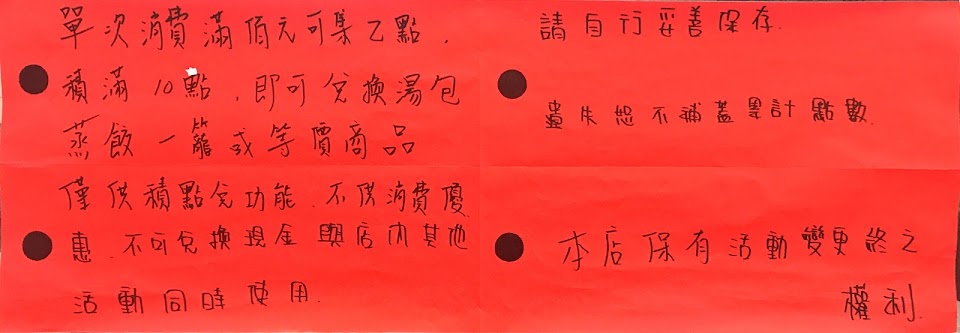 單次消費滿佰元可集乙點.
積滿10點,即可兌換湯包
蒸餃一籠或等價商品
僅供積點兌功能.不供消費優
惠.不可兌換現金與店內其他
活動同時使用.
請自行妥善保存.
遺失恕不補蓋累計點數.
本店保有活動變更終之
權利.